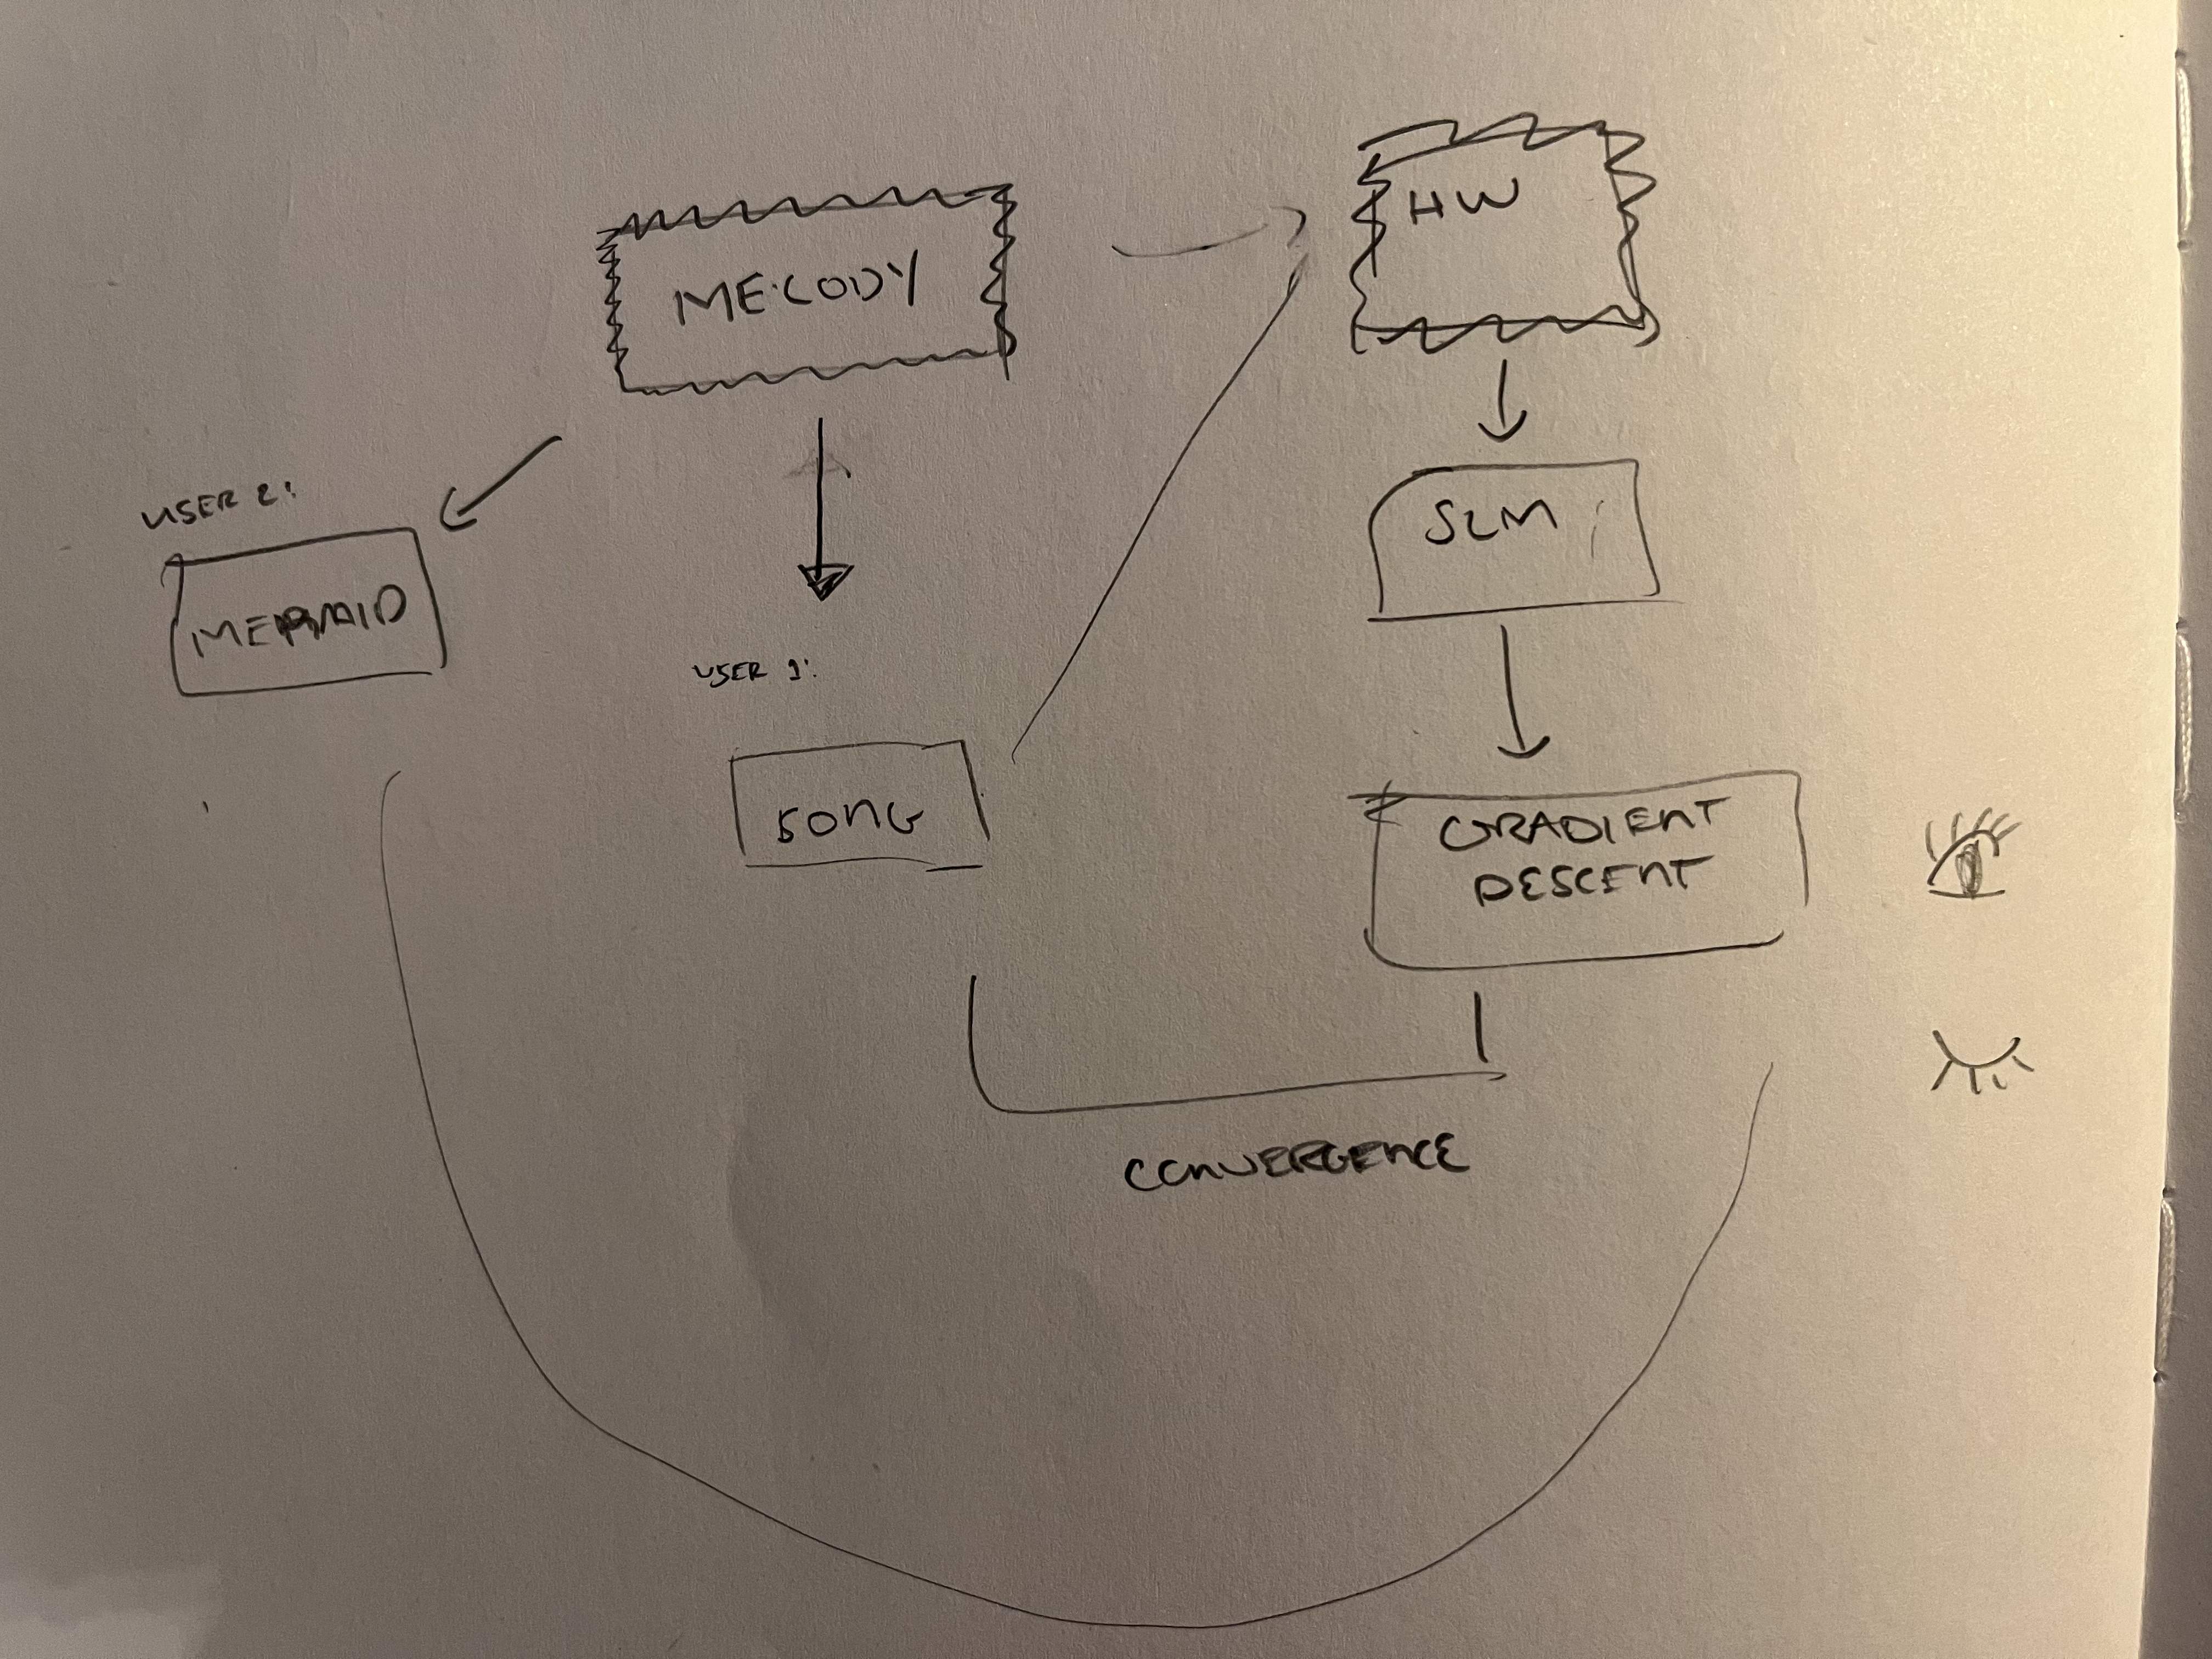 MELODY
HW
USER 2:
MERMAID
USER 1:
SONG
SLM
GRADIENT
DESCENT
CONVERGENCE